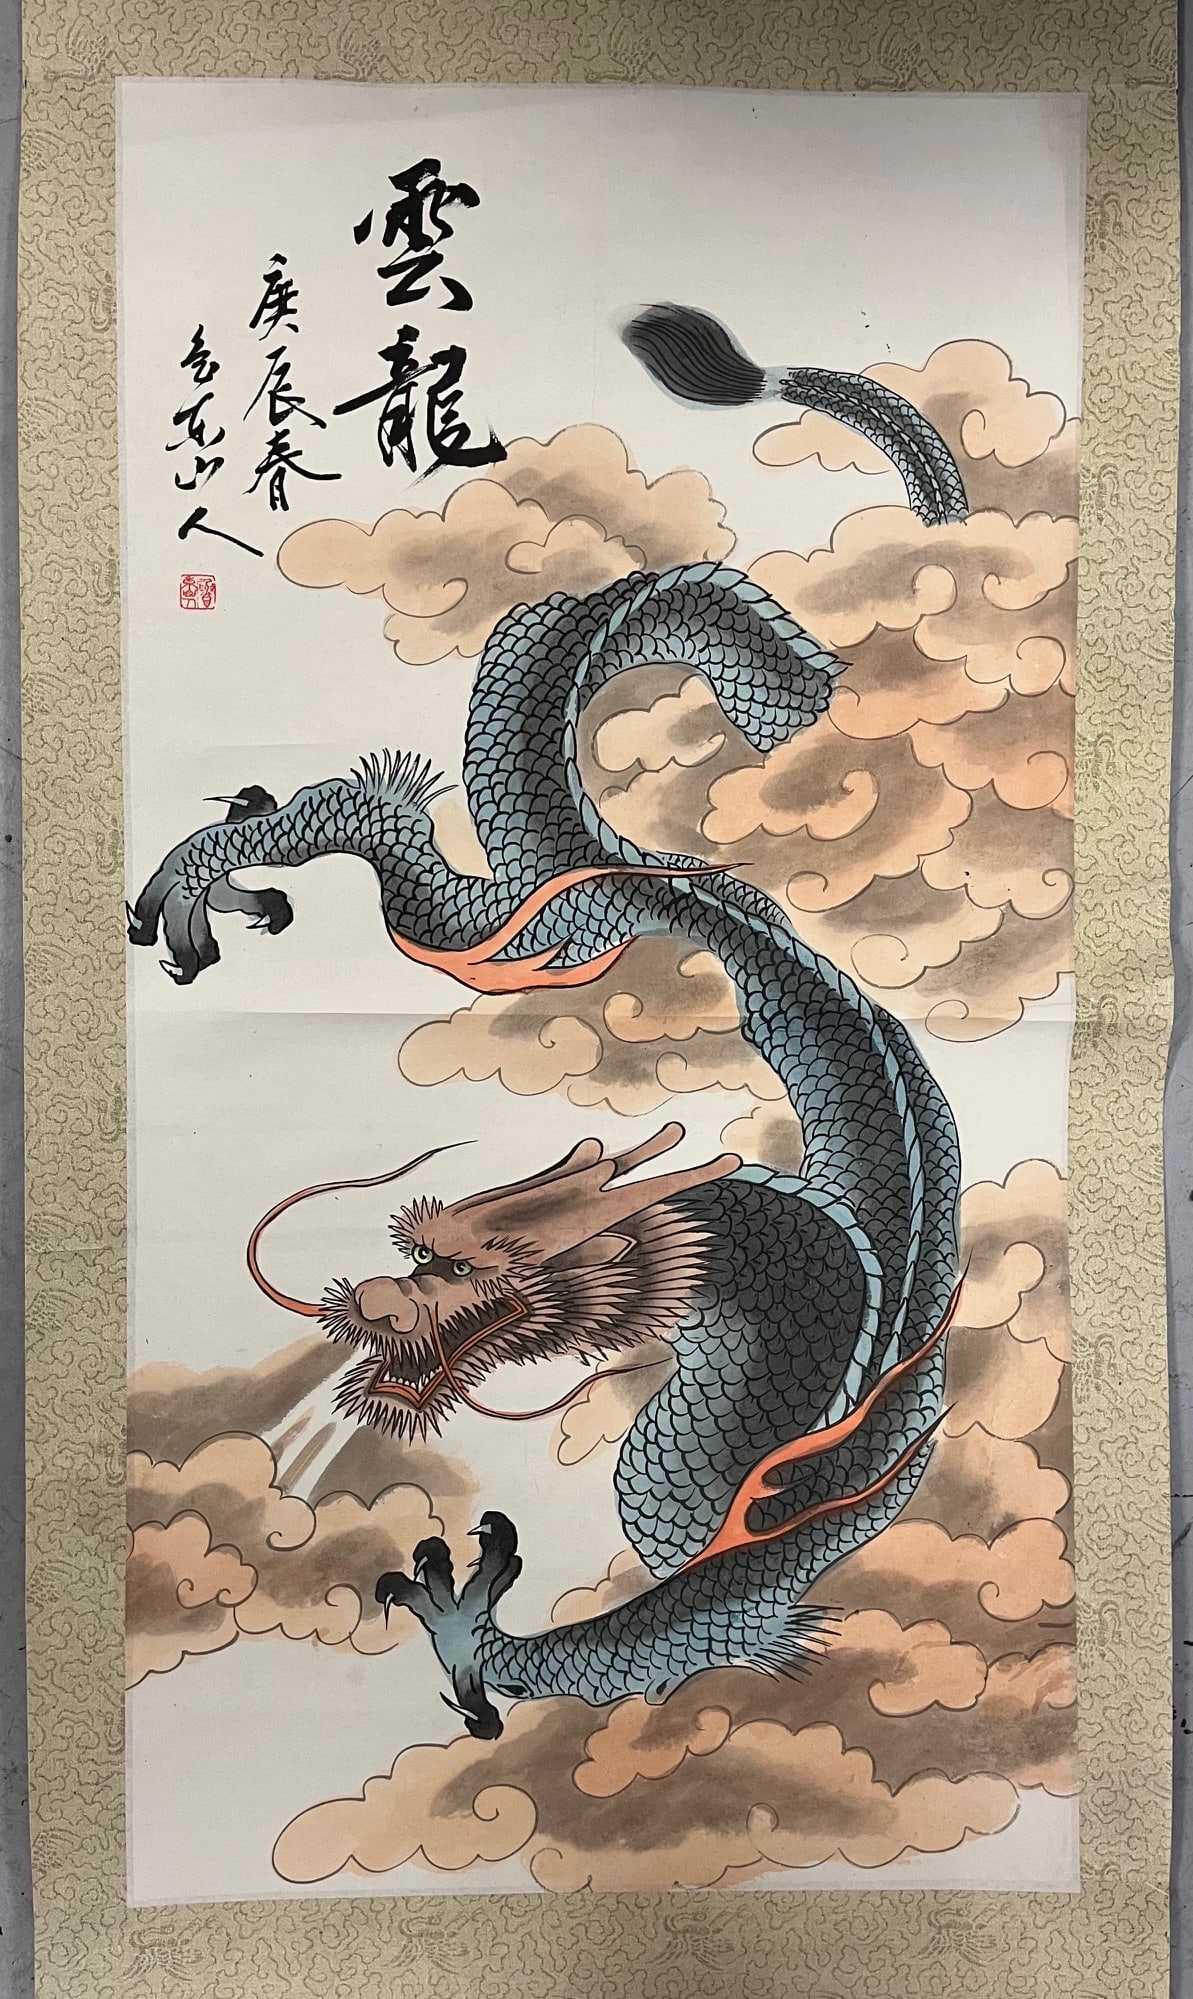 雲龍
庚辰春
東山人